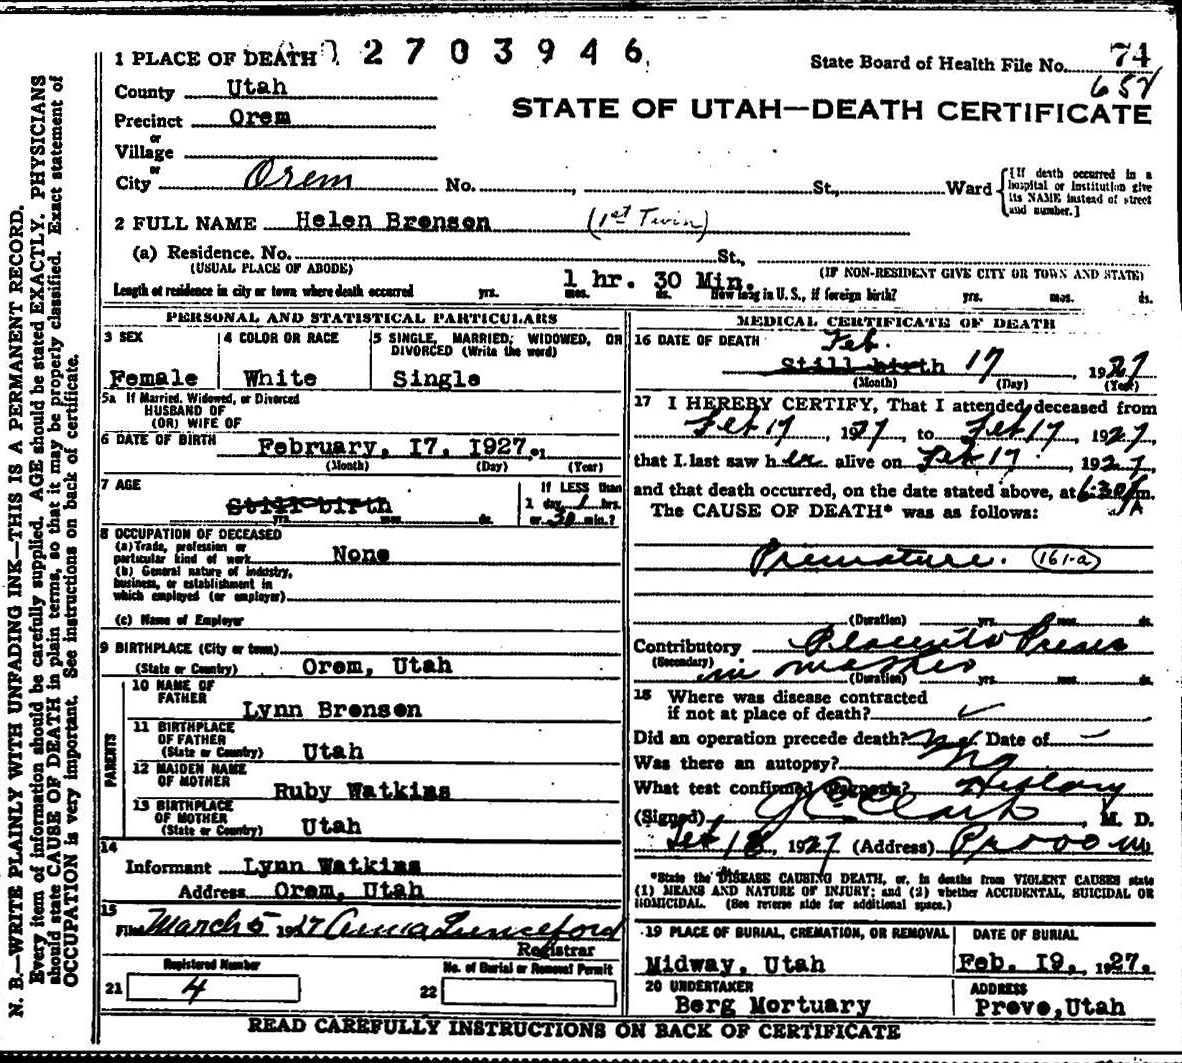 1 PLACE OF DEATH 2703946
State Board of Health File No. 74
County Utah
STATE OF UTAH—DEATH CERTIFICATE
Precinct Orem
or
Village
or
City Orem No. , St., Ward
[If death occurred in a hospital or institution give its NAME instead of street and number.]
2 FULL NAME Helen Bronson (1st Twin)
(a) Residence. No. St.,
(USUAL PLACE OF ABODE) (IF NON-RESIDENT GIVE CITY OR TOWN AND STATE)
1 hr. 30 Min.
Length of residence in city or town where death occurred yrs. mos. ds. How long in U. S., if foreign birth? yrs. mos. ds.
PERSONAL AND STATISTICAL PARTICULARS
3 SEX 4 COLOR OR RACE 5 SINGLE, MARRIED, WIDOWED, OR DIVORCED (Write the word)
Female White Single
5a If Married, Widowed, or Divorced
HUSBAND OF
(OR) WIFE OF
6 DATE OF BIRTH February, 17, 1927.
(Month) (Day) (Year)
7 AGE Still birth
yrs. mos. ds.
If LESS than
1 day 1 hrs.
or 30 min.?
8 OCCUPATION OF DECEASED
(a) Trade, profession or
particular kind of work None
(b) General nature of industry,
business, or establishment in
which employed (or employer)
(c) Name of Employer
9 BIRTHPLACE (City or town)
(State or Country) Orem, Utah
PARENTS
10 NAME OF
FATHER Lynn Bronson
11 BIRTHPLACE
OF FATHER
(State or Country) Utah
12 MAIDEN NAME
OF MOTHER Ruby Watkins
13 BIRTHPLACE
OF MOTHER
(State or Country) Utah
14
Informant Lynn Watkins
Address Orem, Utah
15
Filed March 5 1927 Anna Lunceford
Registrar
Registered Number No. of Burial or Removal Permit
21 4 22
MEDICAL CERTIFICATE OF DEATH
16 DATE OF DEATH Feb.
Still birth 17 1927
(Month) (Day) (Year)
17 I HEREBY CERTIFY, That I attended deceased from
Feb 17, 1927, to Feb 17, 1927,
that I last saw her alive on Feb 17, 1927,
and that death occurred, on the date stated above, at 6:30 A m.
The CAUSE OF DEATH* was as follows:
Premature. (161-a)
(Duration) yrs. mos. ds.
Contributory Placenta Previa
(Secondary) in mother
(Duration) yrs. mos. ds.
18 Where was disease contracted
if not at place of death?
Did an operation precede death? No Date of
Was there an autopsy? No
What test confirmed diagnosis? History
(Signed) J C Clark, M. D.
Feb 18, 1927 (Address) Provo U
*State the DISEASE CAUSING DEATH, or, in deaths from VIOLENT CAUSES state
(1) MEANS AND NATURE OF INJURY; and (2) whether ACCIDENTAL, SUICIDAL OR
HOMICIDAL. (See reverse side for additional space.)
19 PLACE OF BURIAL, CREMATION, OR REMOVAL DATE OF BURIAL
Midway, Utah Feb. 19, 1927.
20 UNDERTAKER ADDRESS
Berg Mortuary Provo, Utah
READ CAREFULLY INSTRUCTIONS ON BACK OF CERTIFICATE
N. B.—WRITE PLAINLY WITH UNFADING INK—THIS IS A PERMANENT RECORD.
Every item of information should be carefully supplied. AGE should be stated EXACTLY. PHYSICIANS
should state CAUSE OF DEATH in plain terms, so that it may be properly classified. Exact statement of
OCCUPATION is very important. See instructions on back of certificate.